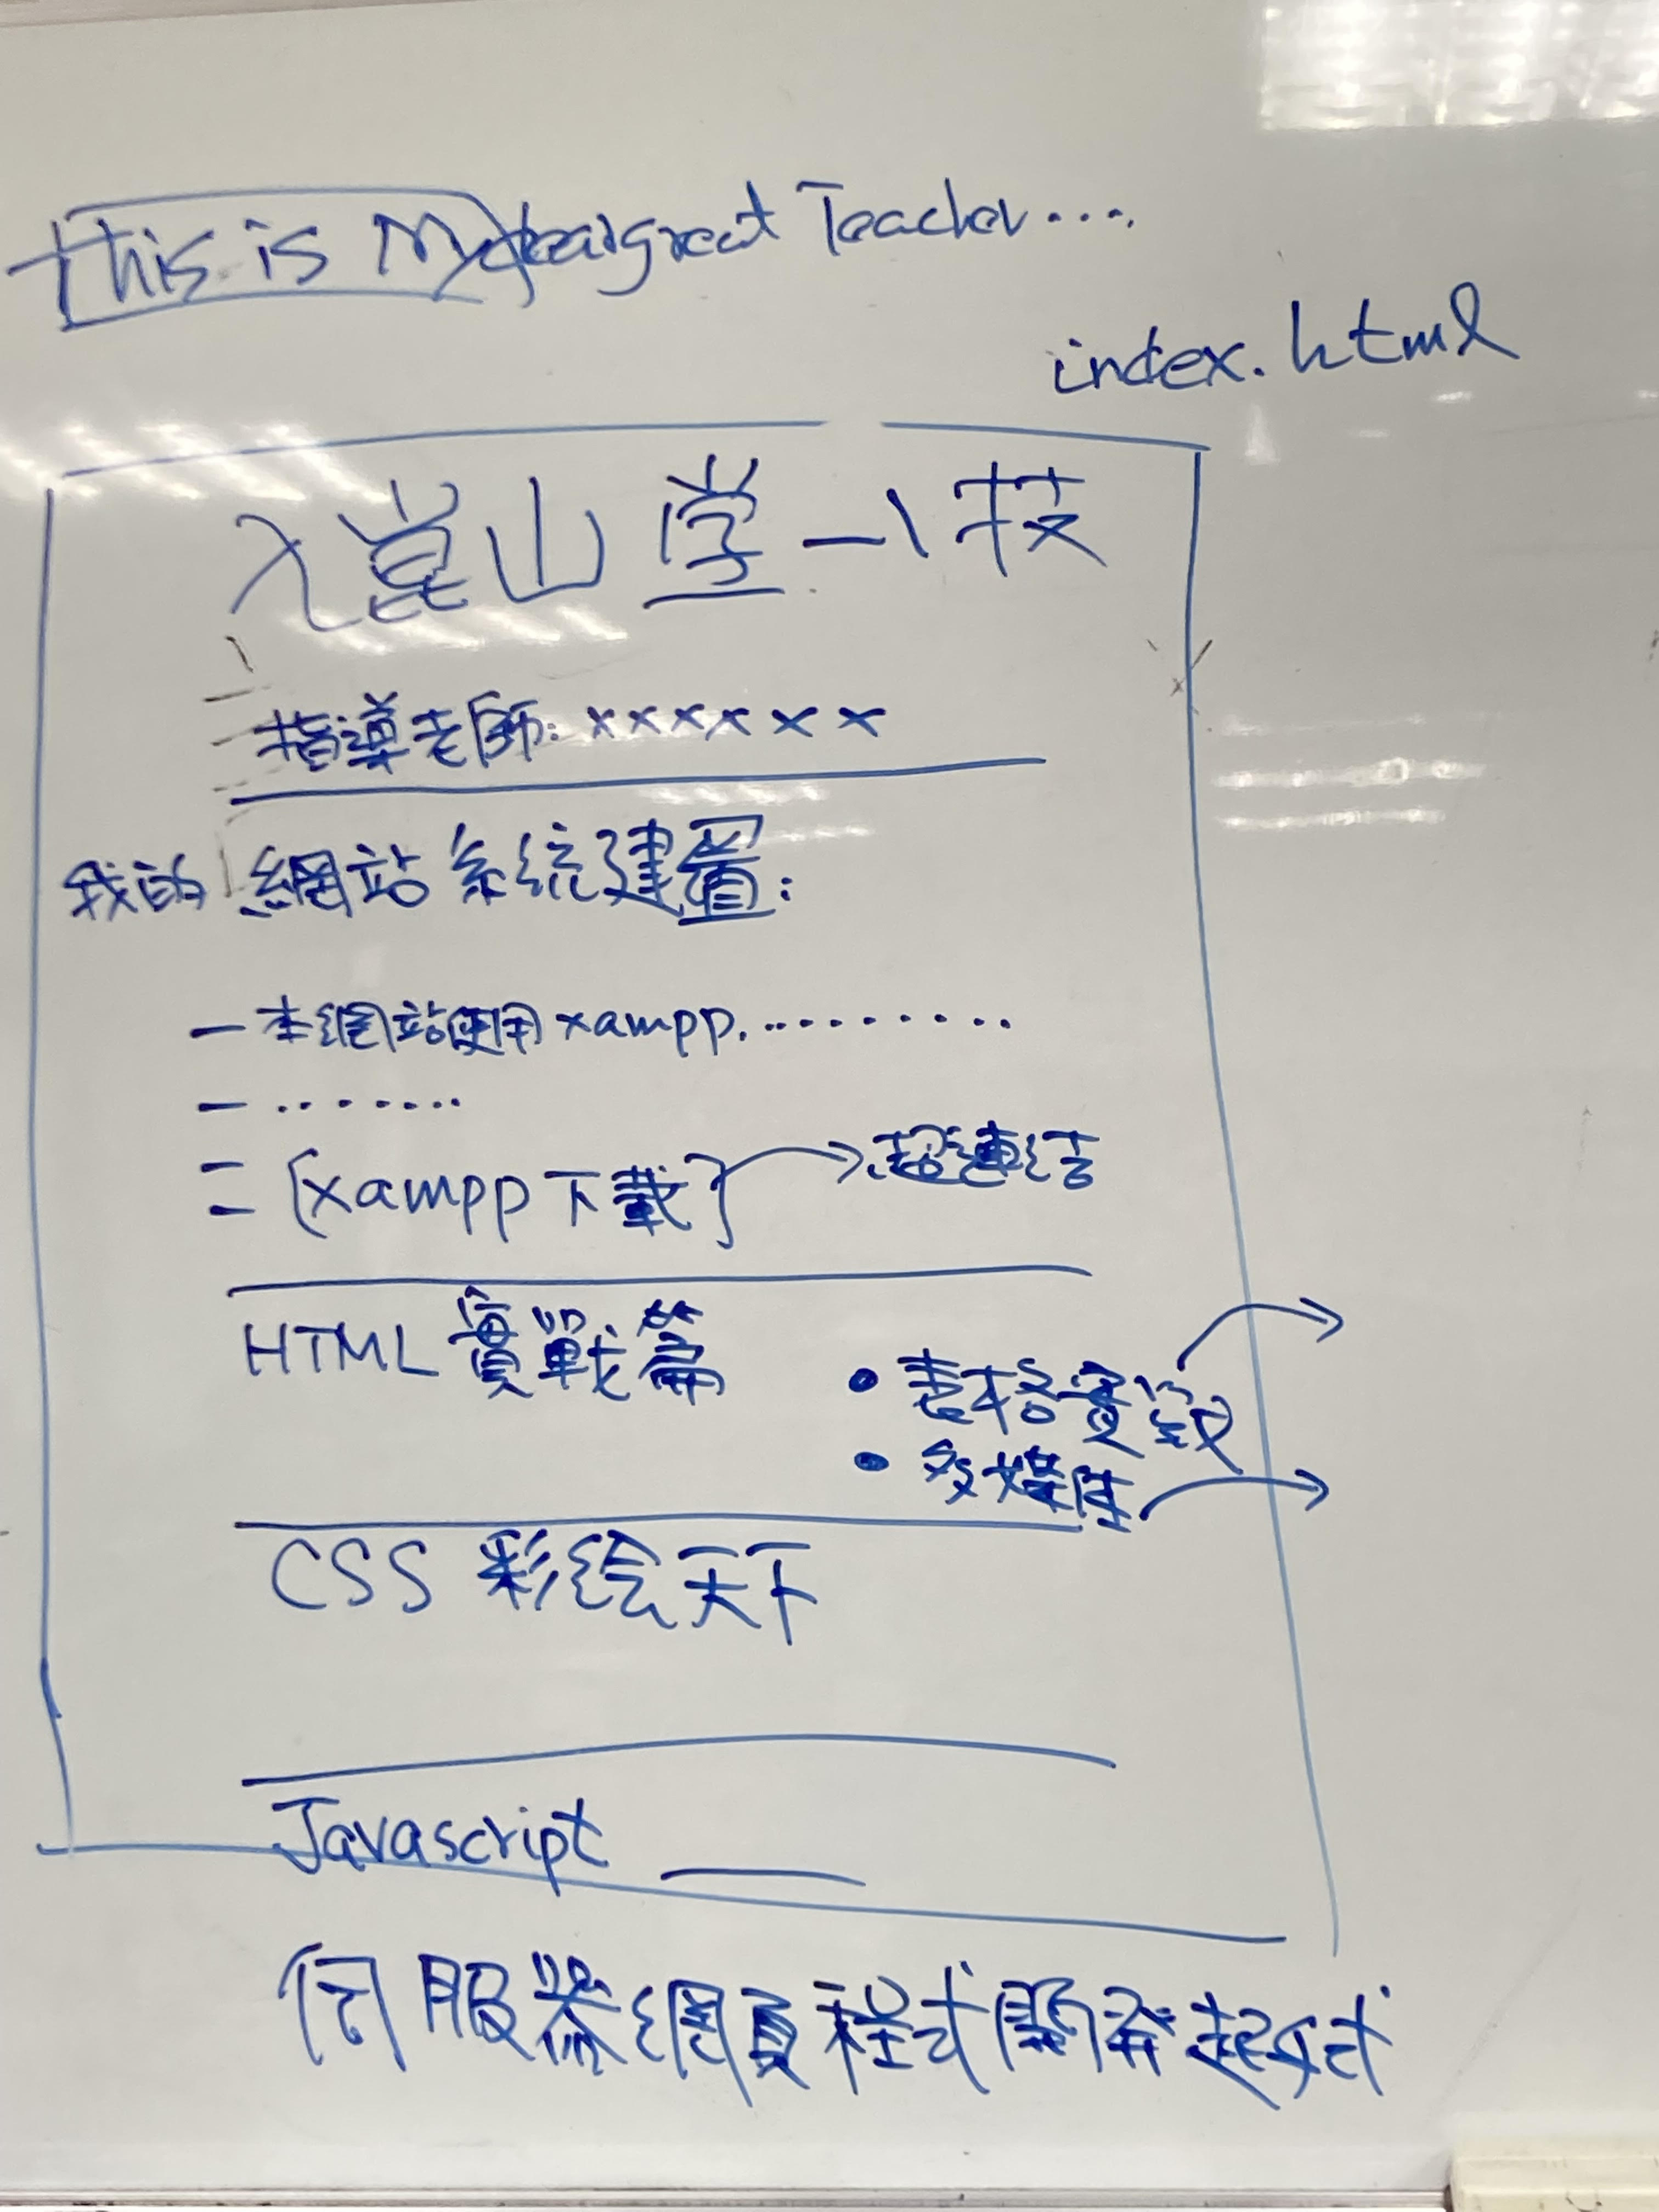 This is My great Teacher....
index.html
入寶山學一技
指導老師: xxxxxx
我的網站系統建置:
一本網站使用xampp...........
一........
二[xampp下載] 超連結
HTML 實戰篇
• 表格實戰
• 多媒体
CSS 彩绘天下
Javascript
伺服器網頁程式開發起式